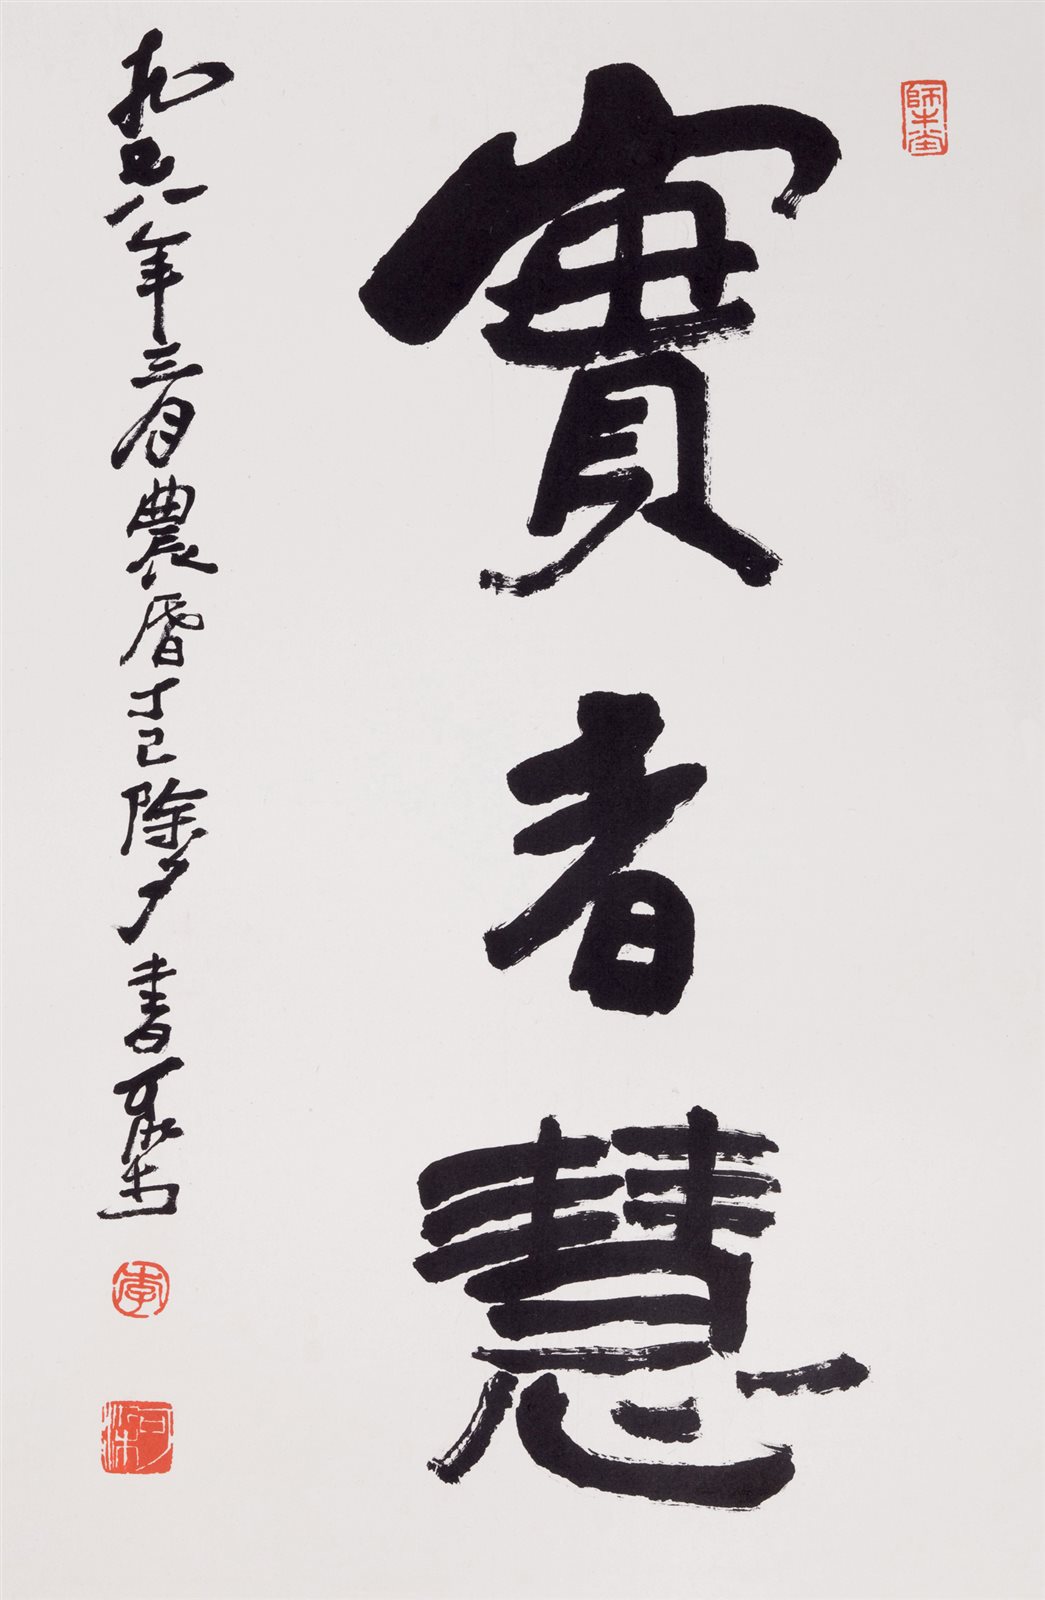 師牛堂
實者慧
一九七八年三月農曆丁巳除夕書可染
李
可染